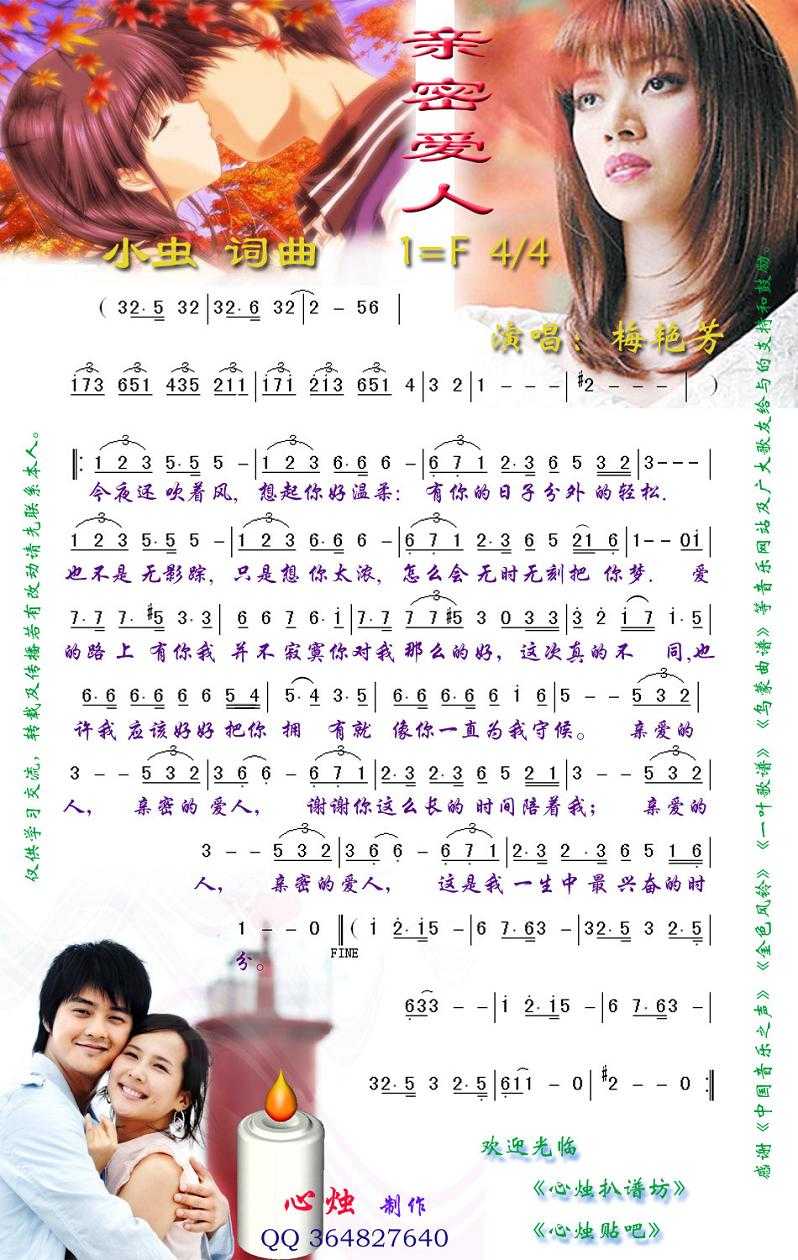 亲密爱人
小虫 词曲 1=F 4/4
演唱：梅艳芳
( 32·5 32 | 32·6 32 | 2 - 56 |
173 651 435 211 | 171 213 651 4 | 3 2 | 1 - - - | #2 - - - | )
‖: 1 2 3 5·5 5 - | 1 2 3 6·6 6 - | 6 7 1 2·3 6 5 32 | 3--- |
今夜还 吹着风, 想起你好温柔: 有你的日子分外 的轻松.
1 2 3 5·5 5 - | 1 2 3 6·6 6 - | 6 7 1 2·3 6 5 21 6 | 1-- 01 |
也不是 无影踪, 只是想 你太浓, 怎么会 无时无刻把 你梦. 爱
7·7 7·#5 3·3 | 6 6 7 6·1 | 7·7 7 7#5 3 0 33 | 3 2 1 7 1·5 |
的路 上 有你我 并不 寂寞你对我 那么的好, 这次真的不 同,也
6·6 6·6 6 6 54 | 5·4 3·5 | 6·6 6·6 6 1 6 | 5 - - 5 3 2 |
许我 应该好好 把你 拥 有就 像你一直为我守候。 亲爱的
3 - - 5 3 2 | 3 6 6 - 6 7 1 | 2·3 2·3 6 5 21 | 3 - - 5 3 2 |
人, 亲密的 爱人, 谢谢你这么长的 时间陪着我; 亲爱的
3 - - 5 3 2 | 3 6 6 - 6 7 1 | 2·3 2·3 6 5 1 16 |
人, 亲密的爱人, 这是我 一生中 最 兴奋的时
1 - - 0 ‖ ( 1 2·15 - | 6 7·63 - | 32·5 3 2·5 |
分。
FINE
633 - - | 1 2·15 - | 6 7·63 - |
32·5 3 2·5 | 611 - 0 | #2 - - 0 :‖
仅供学习交流，转载及传播若有改动请先联系本人。
感谢《中国音乐之声》《金色风铃》《一叶歌谱》《乌蒙曲谱》等音乐网站及广大歌友给与的支持和鼓励。
欢迎光临
《心烛扒谱坊》
《心烛贴吧》
心烛 制作
QQ 364827640